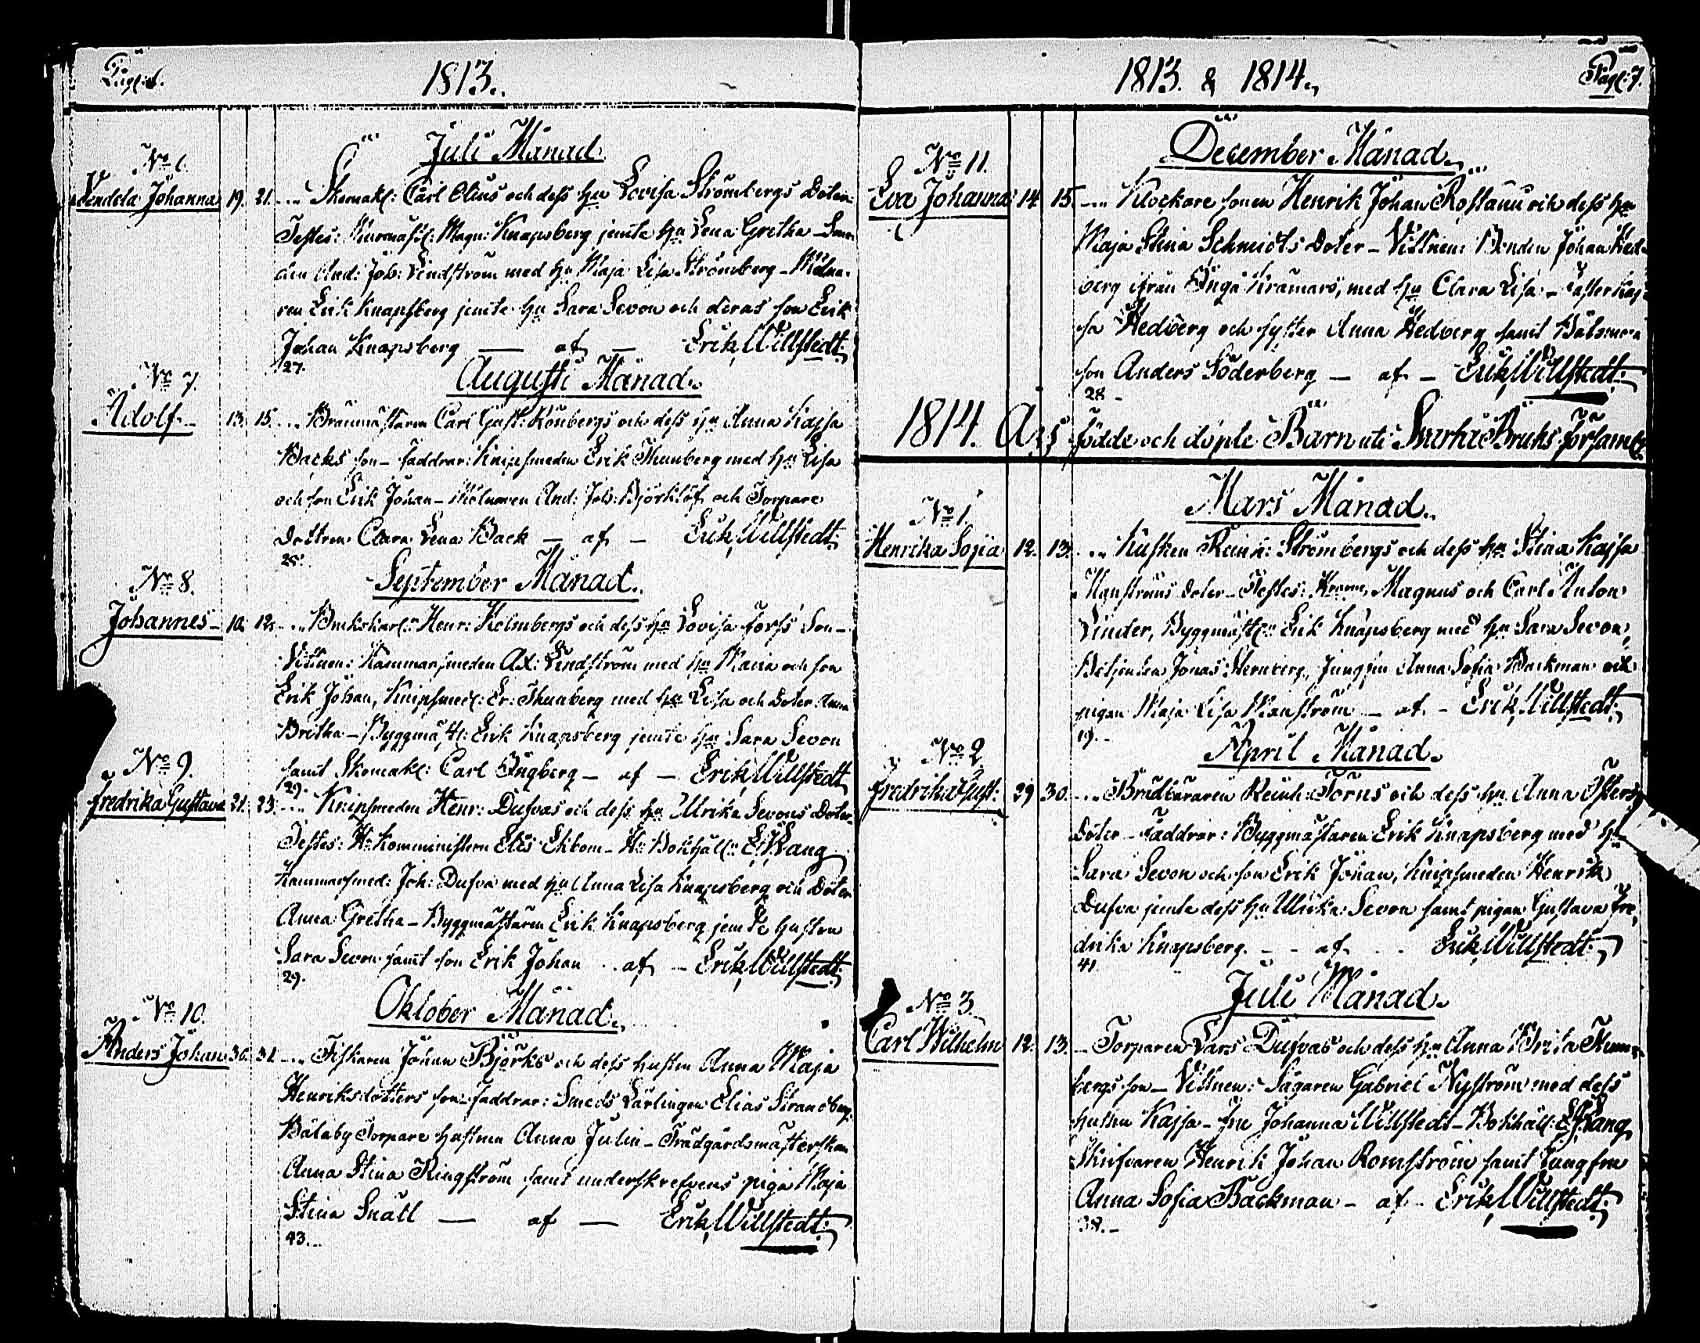 1813.
Juli Månad
No 6.
Vendela Johanna 19. 21. Skomak: Carl Olius och dess hu Lovisa Strömbergs Doter.
Testes: Murmäst: Magn: Knapsberg jemte hu Lena Gretha
And: Joh: Lindström med hu Maja Lisa Strömberg – Mölna-
ren Erik Knapsberg jemte hu Sara Sevon och deras son Erik
Johan Knapsberg — af — Erik Willstedt.
27.
Augusti Månad.
No 7.
Adolf. 13. 15. Carl Gust: Rönbergs och dess hu Anna Kajsa
Backs son – faddrar: Knipsmeden Erik Thunberg med hu Lisa
och son Erik Johan – Mölnaren And: Joh: Björklöf och Torpare
Dottren Clara Lena Back — af — Erik Willstedt.
25.
September Månad.
No 8.
Johannes – 10. 12. Brukskarl: Henr: Holmbergs och dess hu Lovisa Forss Son –
Vittnen: Hammarsmeden Ad: Lindström med hu Maria och son
Erik Johan, Knipsmed: Er: Thunberg med hu Lisa och Doter Anna
Britha – Byggmäst: Erik Knapsberg jemte hu Sara Sevon
samt Skomak: Carl Öngberg – af – Erik Willstedt
29.
No 9.
Fredrika Gustava 21. 23. Knipsmeden Henr: Dufvas och dess hu Ulrika Sevons Doter.
Testes: Hr Komministern Elis Ekbom – Hr Bokhåll: E: Wang
Hammarsmed: Joh: Dufva med hu Anna Lisa Knapsberg och Doter
Anna Gretha – Byggmästaren Erik Knapsberg jemte hustru
Sara Sevon samt son Erik Johan – af – Erik Willstedt.
29.
Oktober Månad.
No 10.
Anders Johan 30. 31. Fiskaren Johan Björks och dess hustru Anna Maja
Henriksdotters son faddrar: Smeds Lärlingen Elias Strandberg.
Bälaby Torpare hustrun Anna Julin – Trädgårdsmästerskan
Anna Stina Ringström samt underskrefvens piga Maja
Stina Snäll — af — Erik Willstedt.
43.
1813. & 1814.
Pag: 7.
December Månad.
No 11.
Eva Johanna 14. 15. Klockare sonen Henrik Johan Rostanu och dess hu
Maja Stina Schmidts Doter – Vittnen: Bonden Johan Hed-
berg ifrån Ingå Kramars, med hu Clara Lisa – faster Kaj-
sa Hedberg och syster Anna Hedberg samt
son Anders Söderberg — af — Erik Willstedt.
28.
1814. Års födde och döpte Barn uti Bruks församl:
Mars Månad.
No 1.
Henrika Sofia 12. 13. Kusken Reinh: Strömbergs och dess hu Stina Kajsa
Manströms Doter – Testes: Magnus och Carl Anton
Linder, Byggmäst: Erik Knapsberg med hu Sara Sevon,
Betjenten Jonas Sternberg, jungfru Anna Sofia Backman och
pigan Maja Lisa Manström – af – Erik Willstedt.
19.
April Månad.
No 2.
Fredrika Gust: 29. 30. Brädbäraren Reinh: Törns och dess hu Anna Östers
Doter – faddrar: Byggmästaren Erik Knapsberg med hu
Sara Sevon och son Erik Johan, Knipsmeden Henrik
Dufva jemte dess hu Ulrika Sevon samt pigan Gustava Fre-
drika Knapsberg – – af – – Erik Willstedt.
41.
Juli Månad.
No 3.
Carl Wilhelm 12. 13. Torparen Lars Dufvas och dess hu Anna Brita Thun-
bergs son – Vittnen: Sågaren Gabriel Nyström med dess
hustru Kajsa – fru Johanna Willstedt – Bokhåll: E: Wang
Skrifvaren Henrik Johan Romström samt Jungfru
Anna Sofia Backman – af – Erik Willstedt.
38.